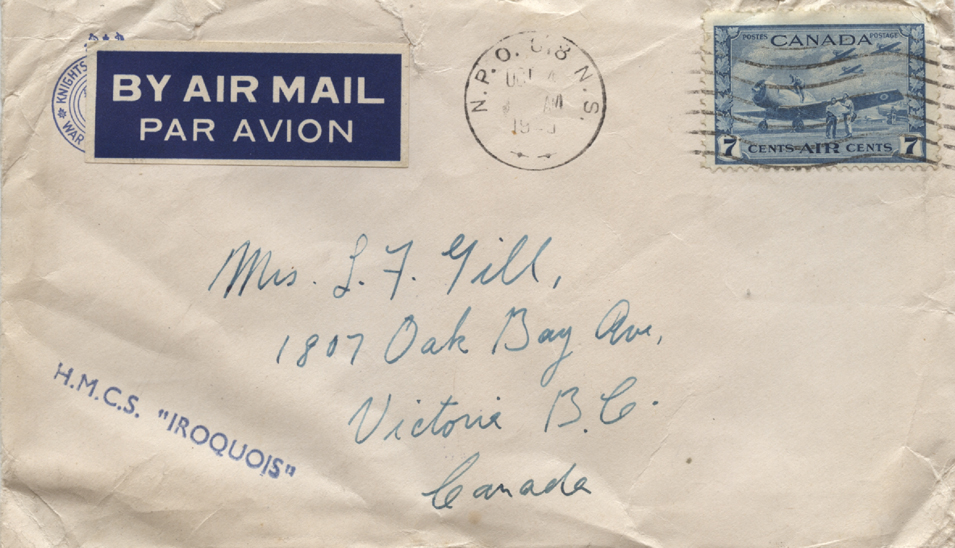 KNIGHTS
WAR
BY AIR MAIL
PAR AVION
N.P.O. 618 N.S.
OCT 4
AM
POSTES POSTAGE
CANADA
7 CENTS-AIR CENTS 7
Mrs. L. F. Gill,
1807 Oak Bay Ave,
Victoria B.C.
Canada
H.M.C.S. "IROQUOIS"